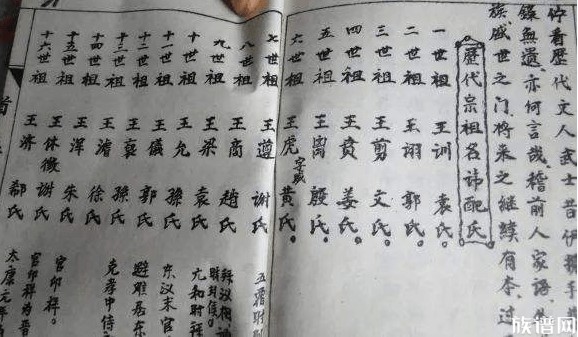 看歷代文人武士昔伊
錄無遺亦何言哉稽前人家語
族盛世之门将来之继续有本过
歷代宗祖名讳配氏
一世祖 王训 袁氏。
二世祖 王翊 郭氏。
三世祖 王剪 文氏。
四世祖 王贲 姜氏。
五世祖 王 殷氏。
六世祖 王虎 字威 黄氏。
七世祖 王遵 谢氏
八世祖 王商 趙氏
九世祖 王梁 袁氏
十世祖 王允 孫氏 东汉末官
十一世祖 王儀 郭氏 避难居东
十二世祖 王襄 孫氏 克孝中侍
十三世祖 王濬 徐氏
十四世祖 王浑 朱氏
十五世祖 王休徵 谢氏
十六世祖 王济 郗氏 太康元年
族谱网